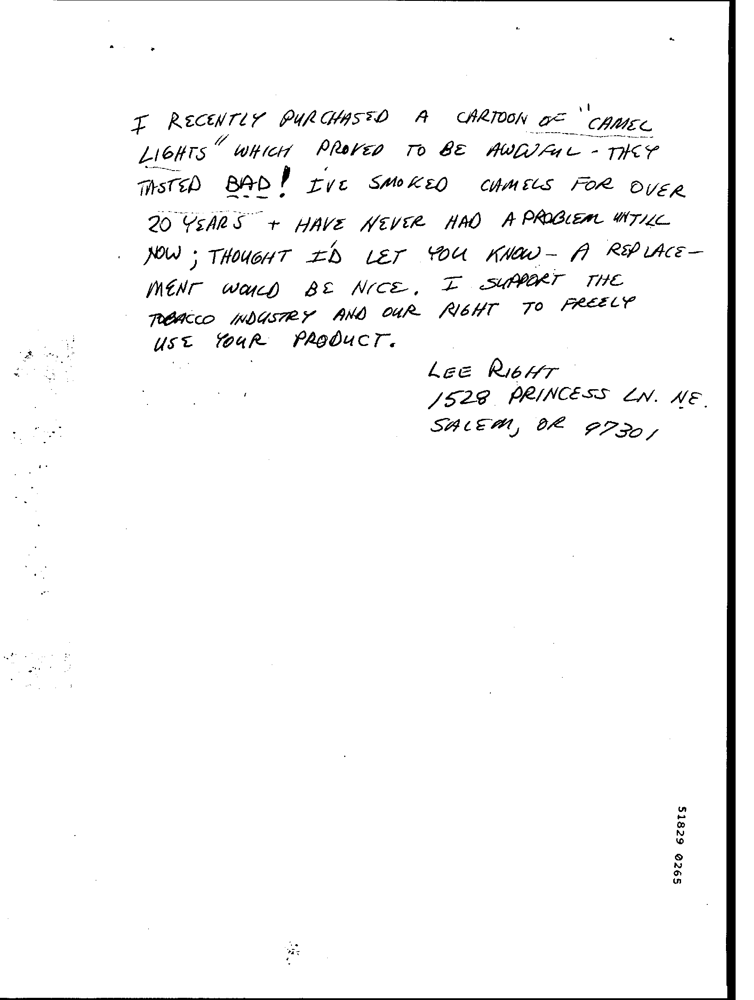 I RECENTLY PURCHASED A CARTOON OF "CAMEL
LIGHTS" WHICH PROVED TO BE AWWFUL - THEY
TASTED BAD! I'VE SMOKED CAMELS FOR OVER
20 YEARS + HAVE NEVER HAD A PROBLEM UNTILL
NOW; THOUGHT I'D LET YOU KNOW - A REPLACE-
MENT WOULD BE NICE. I SUPPORT THE
TOBACCO INDUSTRY AND OUR RIGHT TO FREELY
USE YOUR PRODUCT.
LEE RIGHT
1528 PRINCESS LN. NE.
SALEM, OR 97301
51829 0265